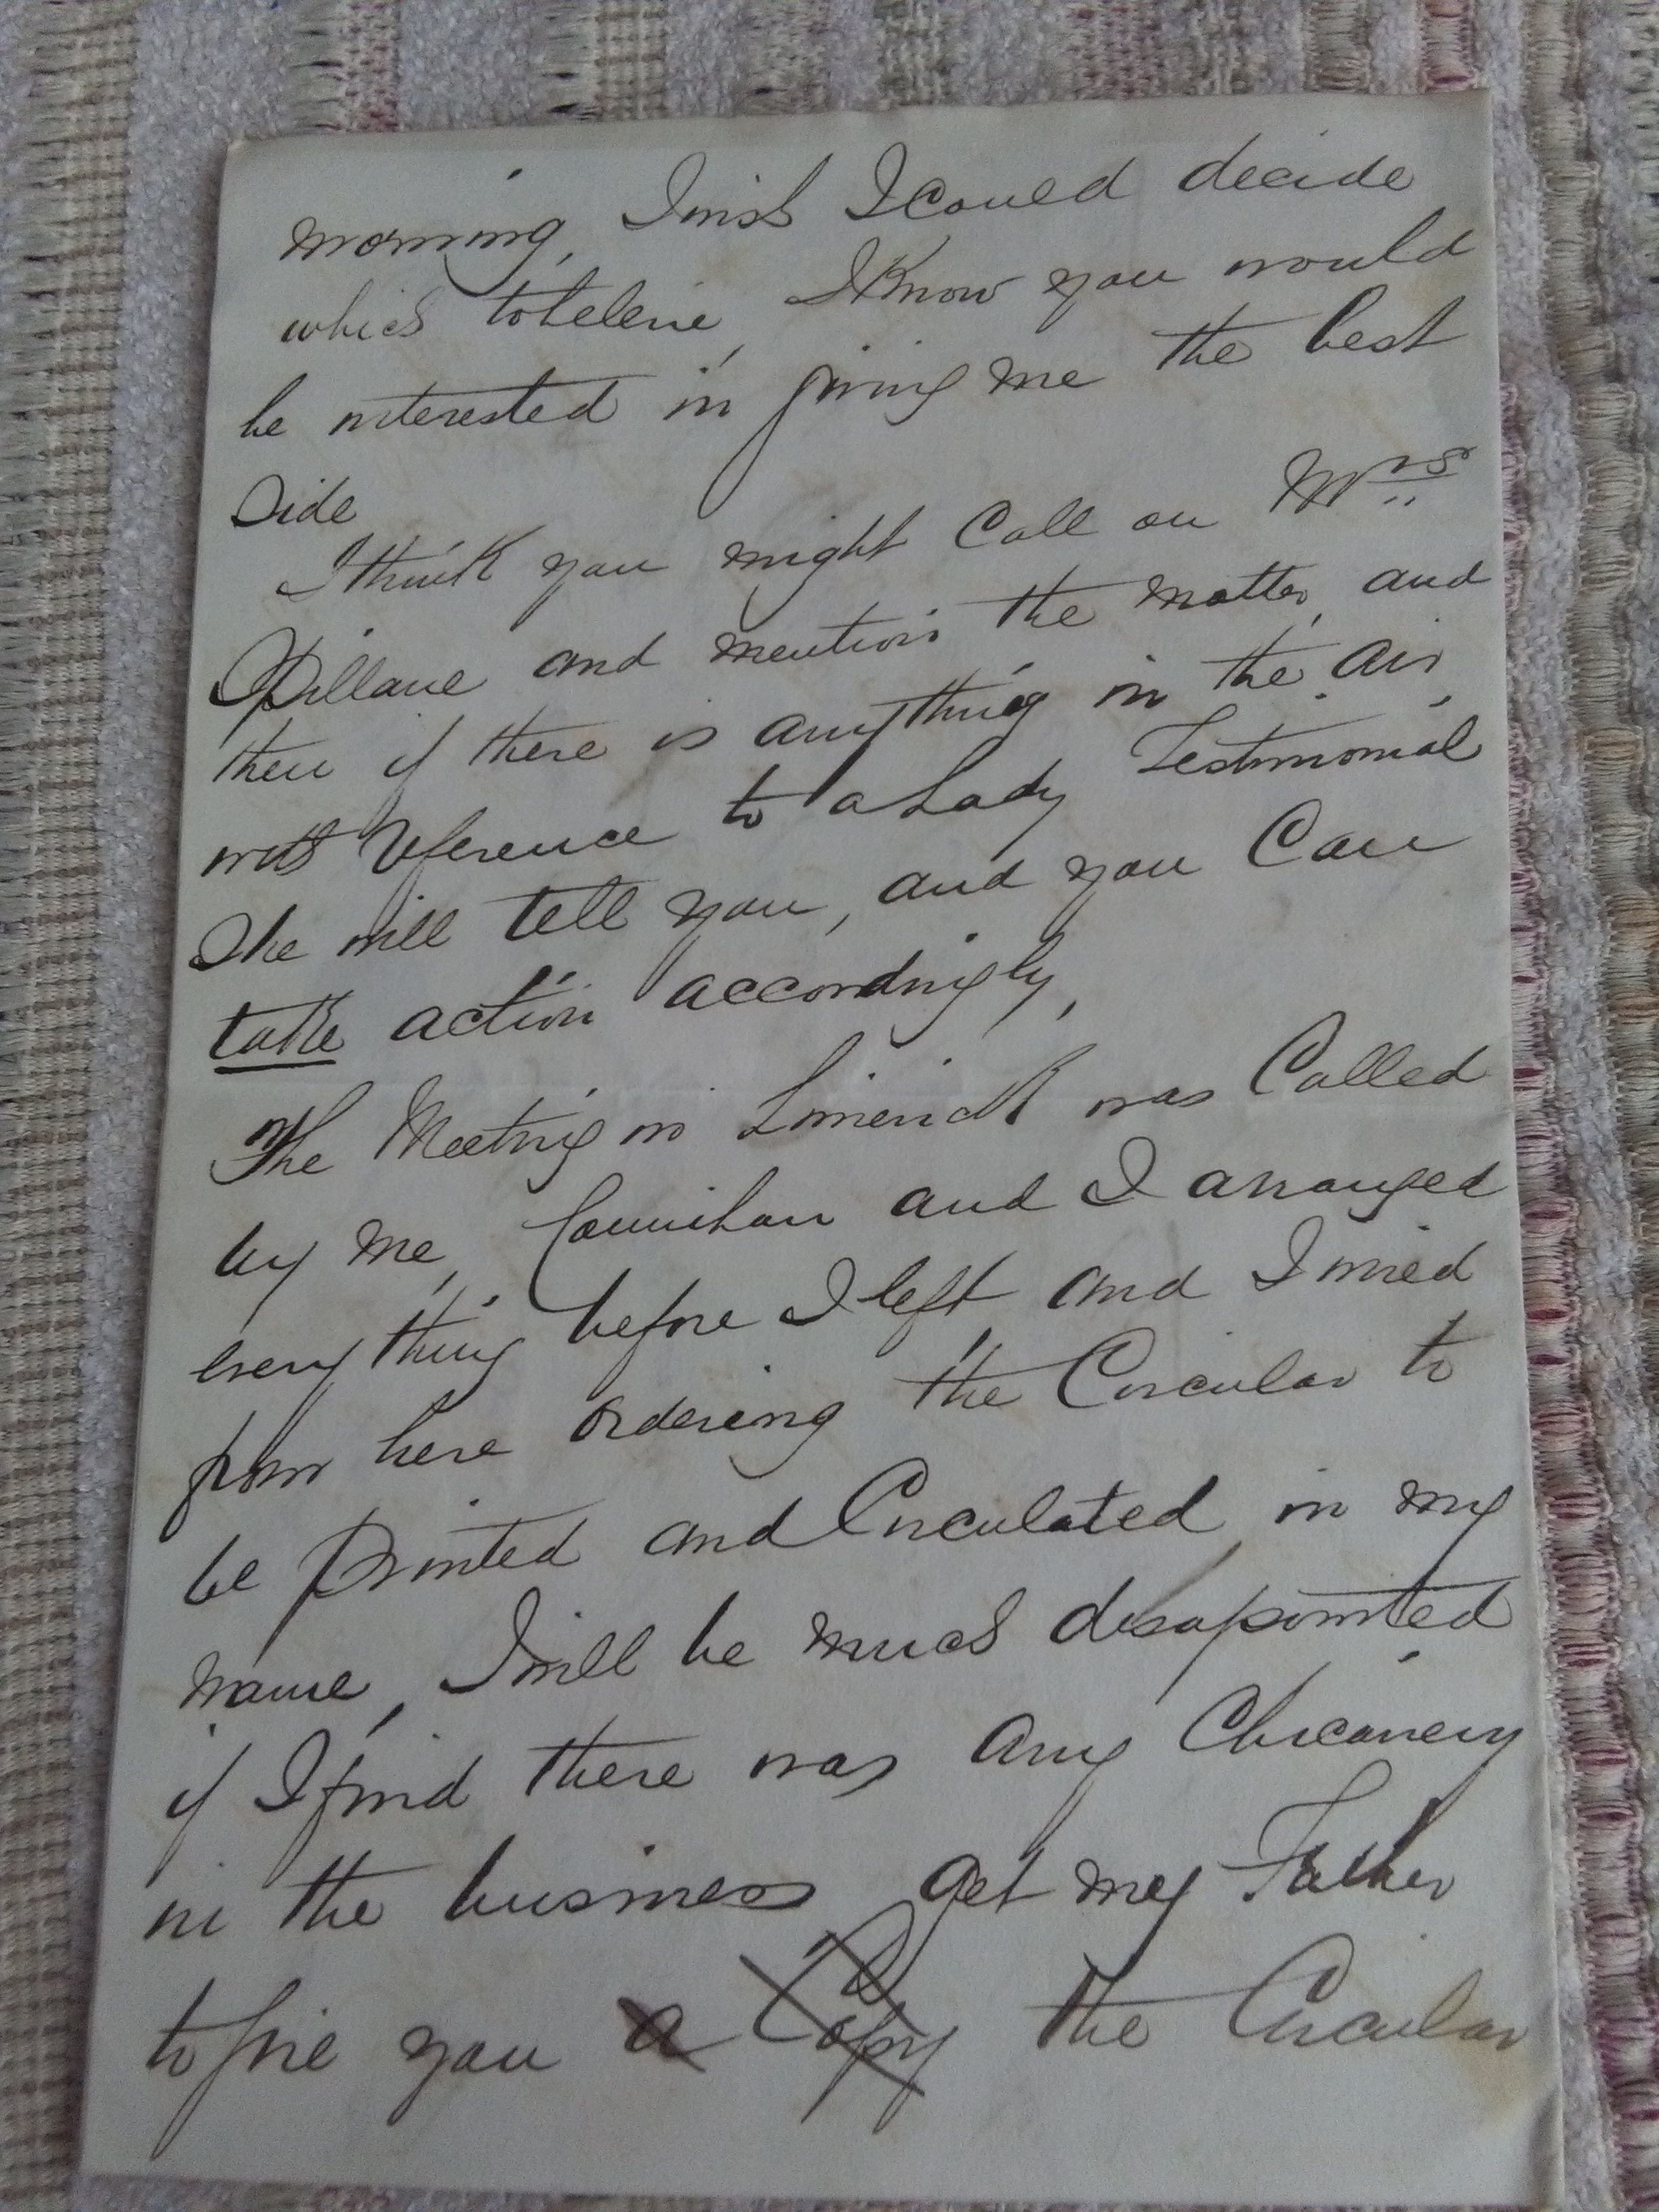 morning, I wish I could decide
which to beleive, I know you would
be interested in giving me the best
Side
I think you might Call on Mrs
Spillane and mention the matter, and
then if there is anything in the air,
with reference to a Lady Testimonial
She will tell you, and you Can
take action accordingly,
The Meeting in Limerick was Called
by me, Counihan and I arranged
every thing before I left and I wired
from here ordering the Circular to
be printed and Circulated in my
name, I will be much disapointed
if I find there was any Chicanery
in the business get my Father
to give you a Copy the Circular